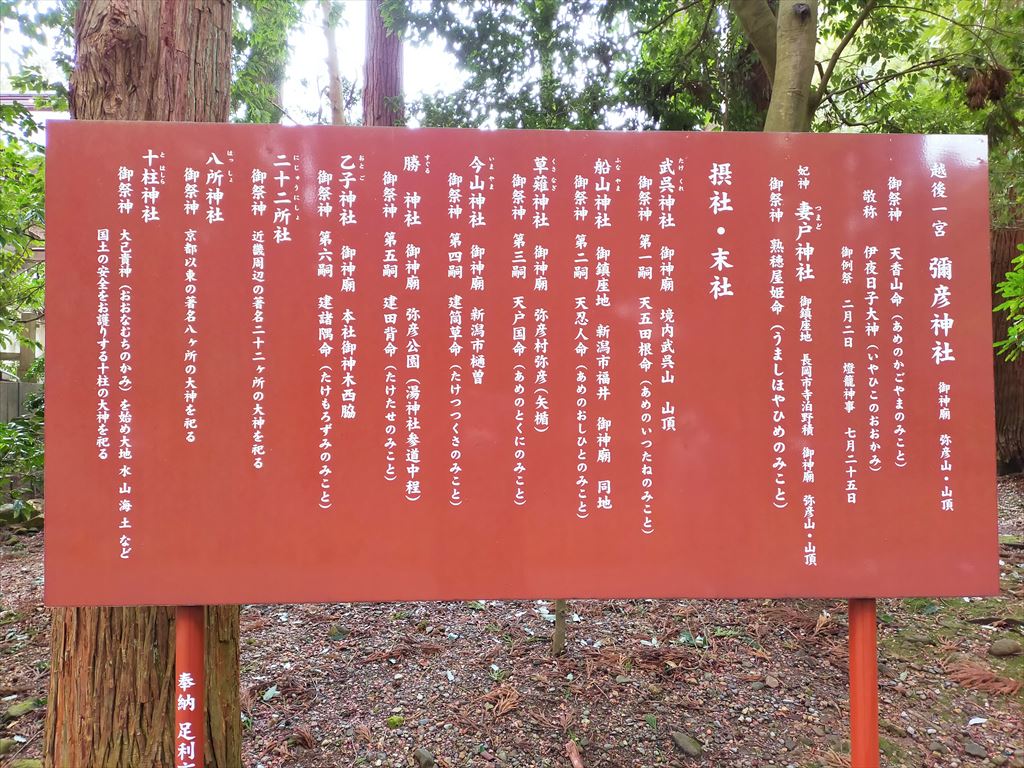 越後一宮 彌彦神社 御神廟 弥彦山・山頂
御祭神 天香山命(あめのかごやまのみこと)
敬称 伊夜日子大神(いやひこのおおかみ)
御例祭 二月二日 燈籠神事 七月二十五日
妃神 妻戸神社 御鎮座地 長岡市寺泊野積 御神廟 弥彦山・山頂
つまど
御祭神 熟穂屋姫命(うましほやひめのみこと)
摂社・末社
武呉神社 御神廟 境内武呉山 山頂
たけくれ
御祭神 第一嗣 天五田根命(あめのいつたねのみこと)
船山神社 御鎮座地 新潟市福井 御神廟 同地
ふなやま
御祭神 第二嗣 天忍人命(あめのおしひとのみこと)
草薙神社 御神廟 弥彦村弥彦(矢楯)
くさなぎ
御祭神 第三嗣 天戸国命(あめのとくにのみこと)
今山神社 御神廟 新潟市樋曽
いまやま
御祭神 第四嗣 建筒草命(たけつつくさのみこと)
勝 神社 御神廟 弥彦公園(湯神社参道中程)
すぐる
御祭神 第五嗣 建田背命(たけたせのみこと)
乙子神社 御神廟 本社御神木西脇
おとご
御祭神 第六嗣 建諸隅命(たけもろずみのみこと)
二十二所社
にじゅうにしょ
御祭神 近畿周辺の著名二十二ヶ所の大神を祀る
八所神社
はっしょ
御祭神 京都以東の著名八ヶ所の大神を祀る
十柱神社
とはしら
御祭神 大己貴神(おおなむちのかみ)を始め大地 水 山 海 土 など
国土の安全をお護りする十柱の大神を祀る
奉納 足利市